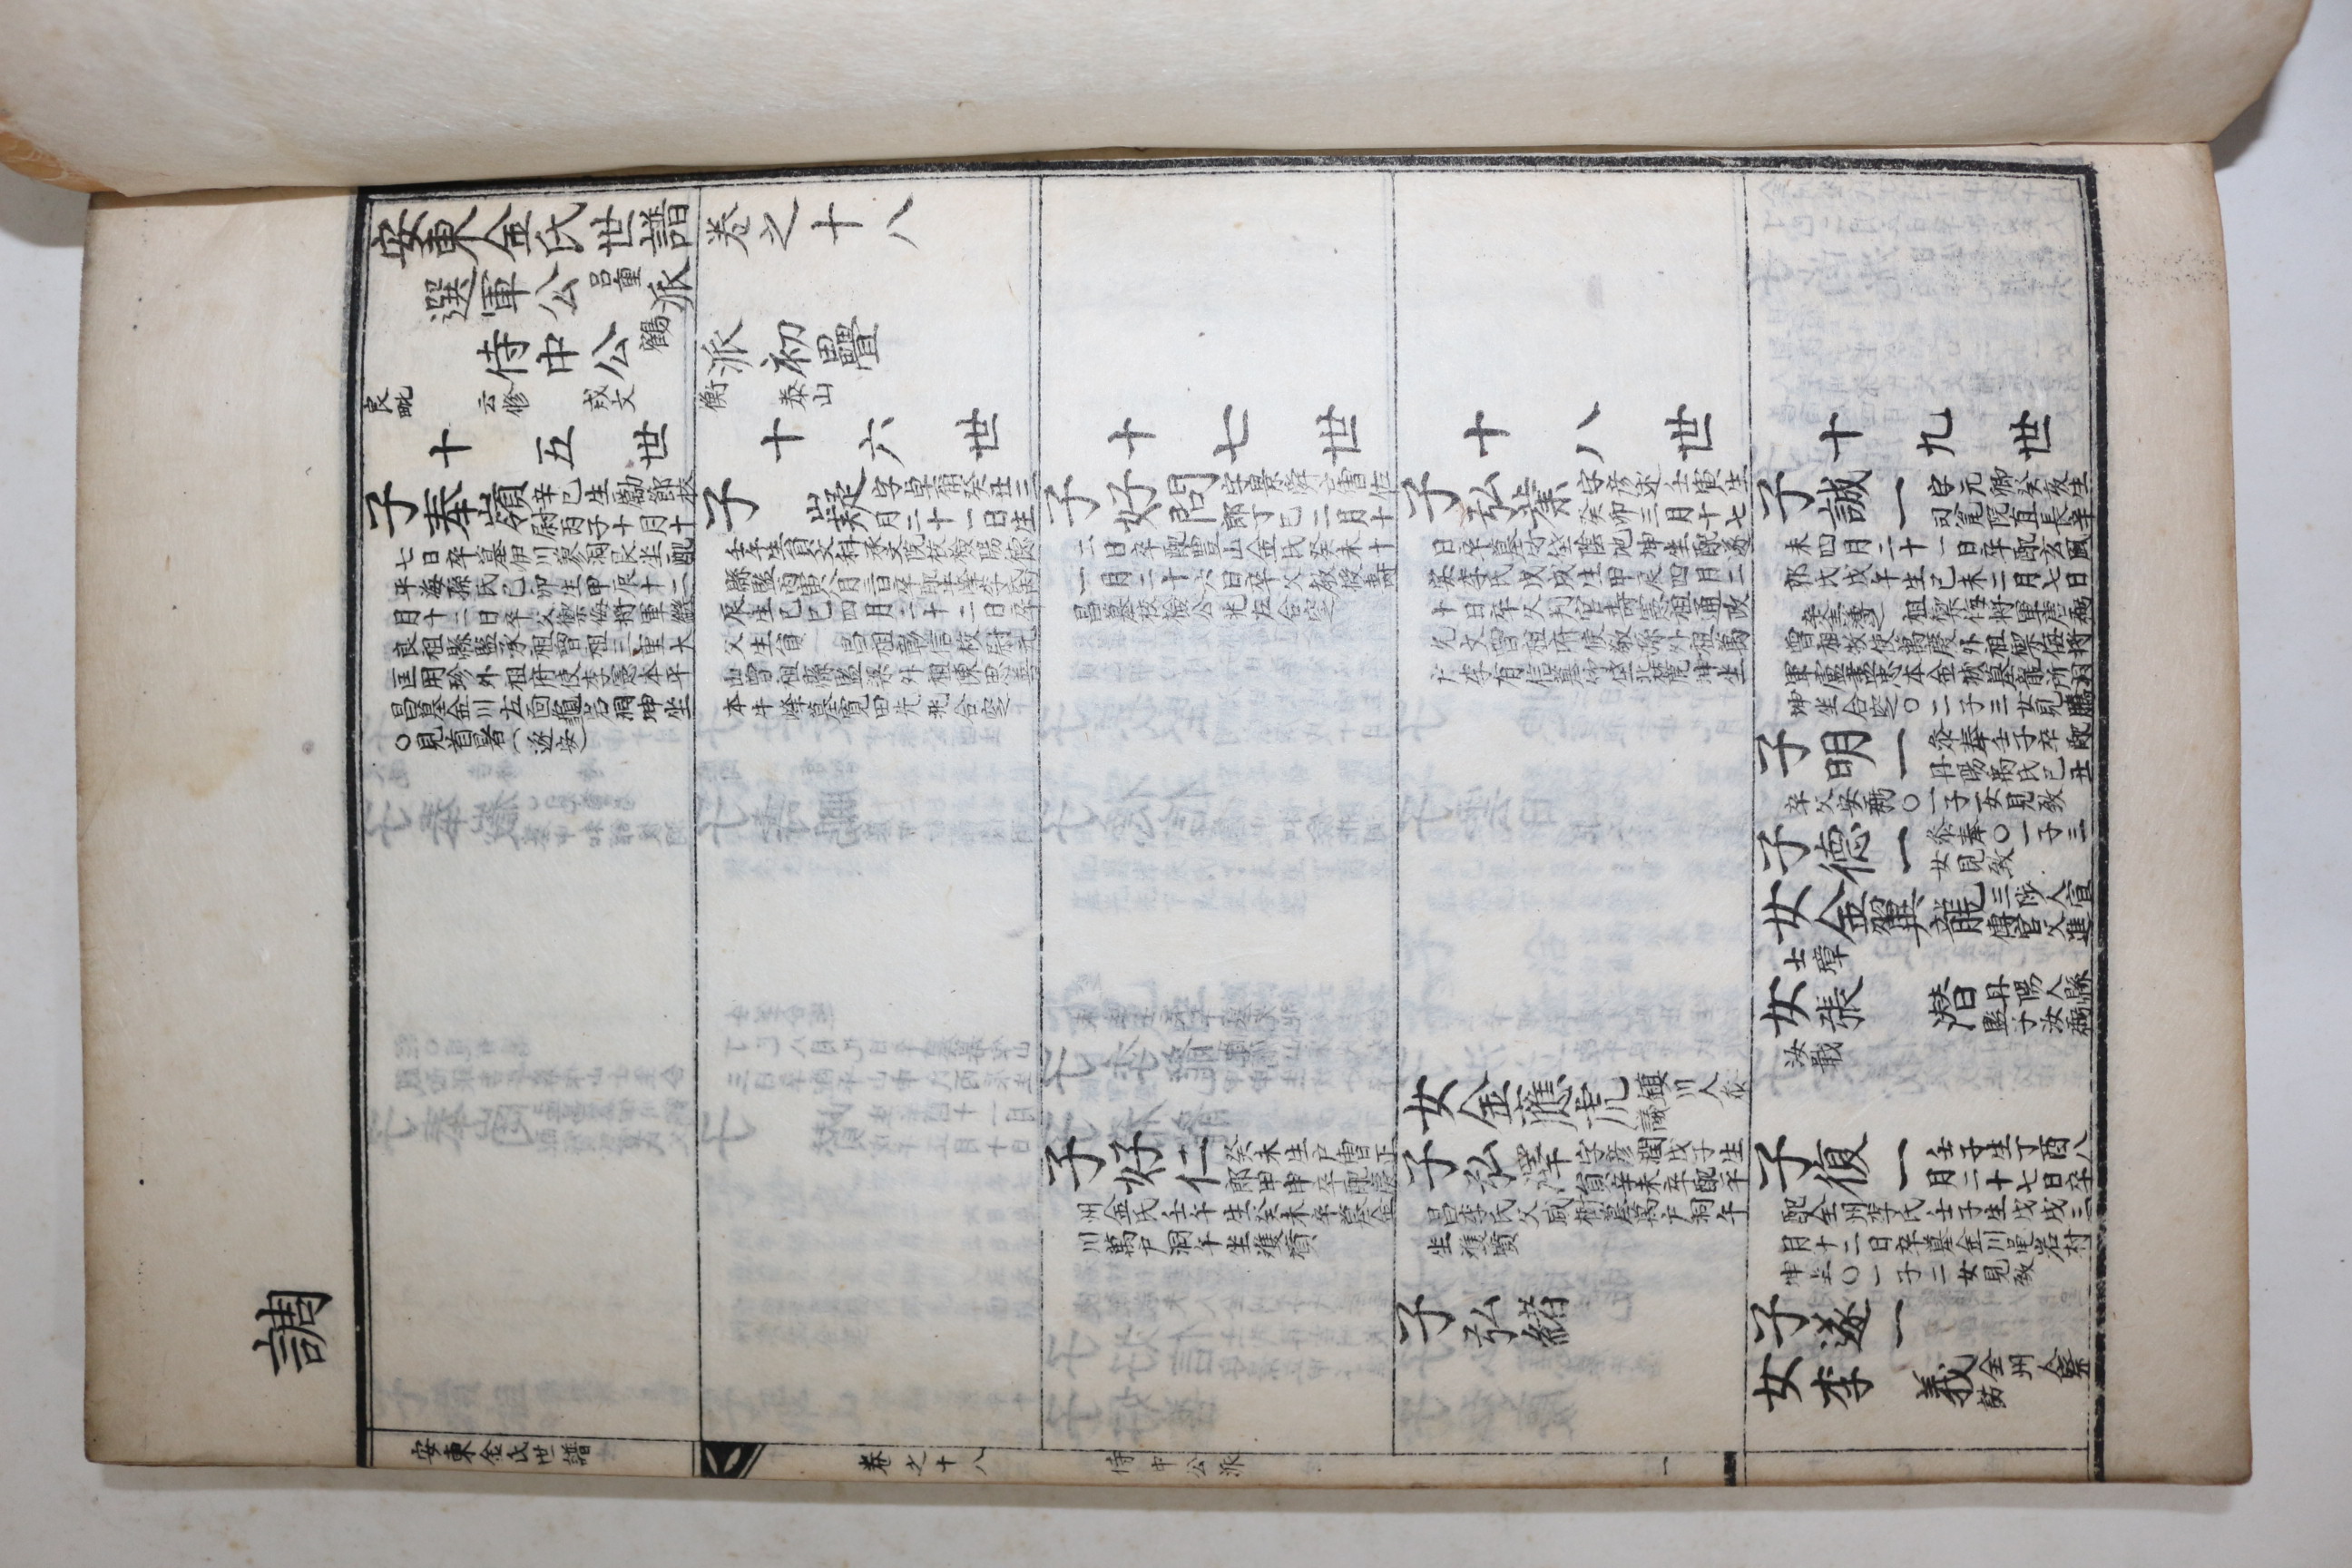 調
安東金氏世譜卷之十八
選軍公呂重派
侍中公鶴派初疊
良毗 云修 戎文 衡 泰山
十五世
子奉嶺
辛巳生勵節校
尉丙子十月十
七日卒墓伊川蓼洞艮坐配
平海孫氏己卯生甲辰十二
月十二日卒父禦侮將軍
良祖縣監承祖曾祖三重大
匡用珍外祖府使李憲本平
昌墓金川左面龜岩洞坤坐
○見首暑(遂安)
十六世
子嶷
字卓爾癸丑三
月二十一日生
壬午生員文科承文院校檢陽德
縣監丙寅八月三日卒配牛峰李氏丙
辰生己巳四月二十二日卒
父生員昌祖彰信校尉元
山曾祖縣監渠外祖陳思善
本牛峰墓寬田先兆合窆
十七世
子好問
字景舜戶曹佐
郎丁巳二月十
二日卒配豊山金氏癸未十
一月二十六日卒父教授壽
昌墓校檢公兆左合窆
子好仁
癸未生戶曹正
郎甲申卒配慶
州金氏壬午生癸未卒墓金
川萬戶洞午坐雙墳
十八世
子弘業
字彦述壬寅生
癸卯三月十七
日卒墓竹垈陰地坤坐配遂
安李氏戊戌生甲辰四月二
十日卒父判官壽憲祖通政
允文曾祖府使敬孫外祖萬
戶李有信墓竹垈北麓坤坐
女金應虎
鎮川人參
議
子弘澤
字彦潤戊子生
員辛未卒配平
昌李氏父咸樹墓萬戶洞午
坐雙墳
子弘緖
十九世
子誠一
字元卿癸亥生
司瓮院直長辛
未四月二十一日卒配玄風
郭氏戊午生己未二月七日
卒 祖禦侮將軍唐弼
曾祖牧使萬慶外祖禦侮將
軍盧盡忠本金城墓龍所洞
坤坐合窆○二子三女見騰
子明一
參奉壬子卒配
丹陽禹氏己丑
卒父安弼○一子一女見致
子德一
參奉○一子三
女見致
女金翼龍
三陟人宣
傳官父進
士璋
女張潛
丹陽人縣
監子汝弼
汝戩
子復一
壬子生丁酉八
月二十七日卒
配全州李氏壬子生戊戌三
月十二日卒墓金川黽岩村
坤坐○一子二女見致
子遂一
女李義
全州人察
訪
安東金氏世譜 卷之十八 侍中公派 一